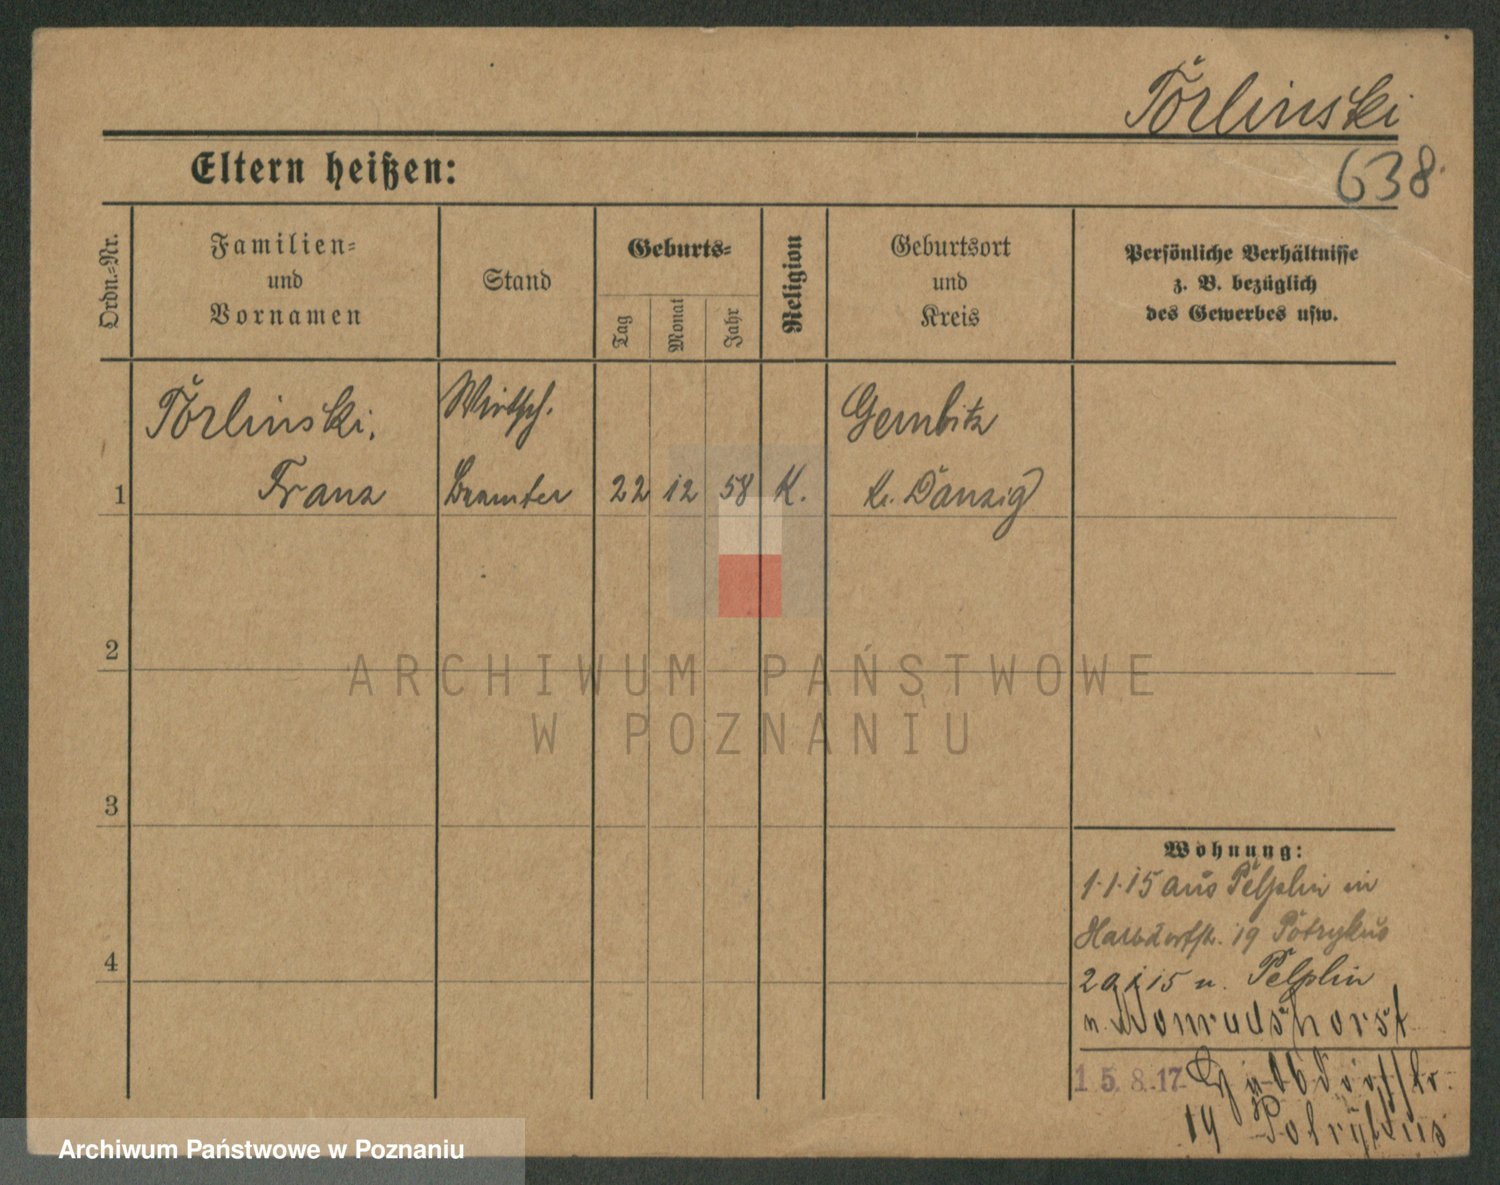 Törlinski
638.
Eltern heißen:
Ordn.=Nr.
Familien=
und
Vornamen
Stand
Geburts=
Tag
Monat
Jahr
Religion
Geburtsort
und
Kreis
Persönliche Verhältnisse
z. B. bezüglich
des Gewerbes usw.
Törlinski,
Wirtsch.
Gembitz
1
Franz
Beamter
22
12
58
K.
Kr. Danzig
2
3
4
Wohnung:
1.1.15 aus Pelplin in
19 Potrykus
Pelplin
15.8.17
19
ARCHIWUM PAŃSTWOWE
W POZNANIU
Archiwum Państwowe w Poznaniu